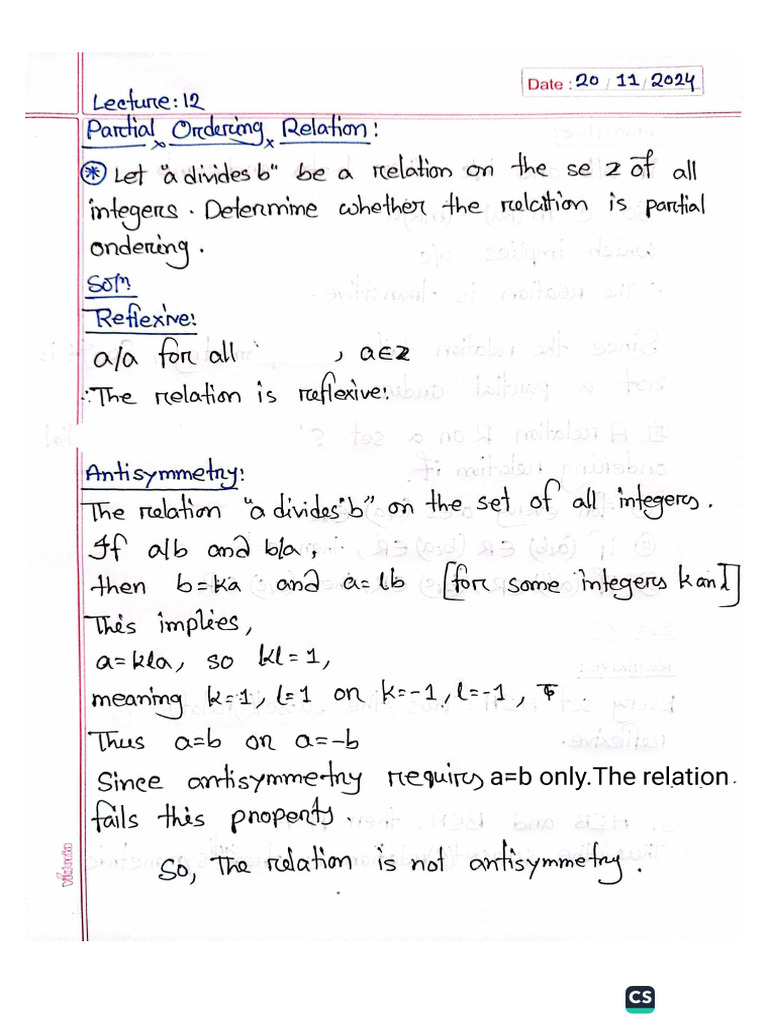 Date : 20 / 11 / 2024
Lecture: 12
Partial Ordering Relation:
* Let "a divides b" be a relation on the se Z of all
integers. Determine whether the relation is partial
ordering.
Solⁿ:
Reflexive:
a/a for all , a∈Z
∴The relation is reflexive.
Antisymmetry:
The relation "a divides b" on the set of all integers.
If a/b and b/a,
then b=ka and a=lb [for some integers k an l]
This implies,
a=kla, so kl=1,
meaning k=1, l=1 or k=-1, l=-1,
Thus a=b or a=-b
Since antisymmetry requires a=b only.The relation
fails this property.
So, The relation is not antisymmetry.
CS